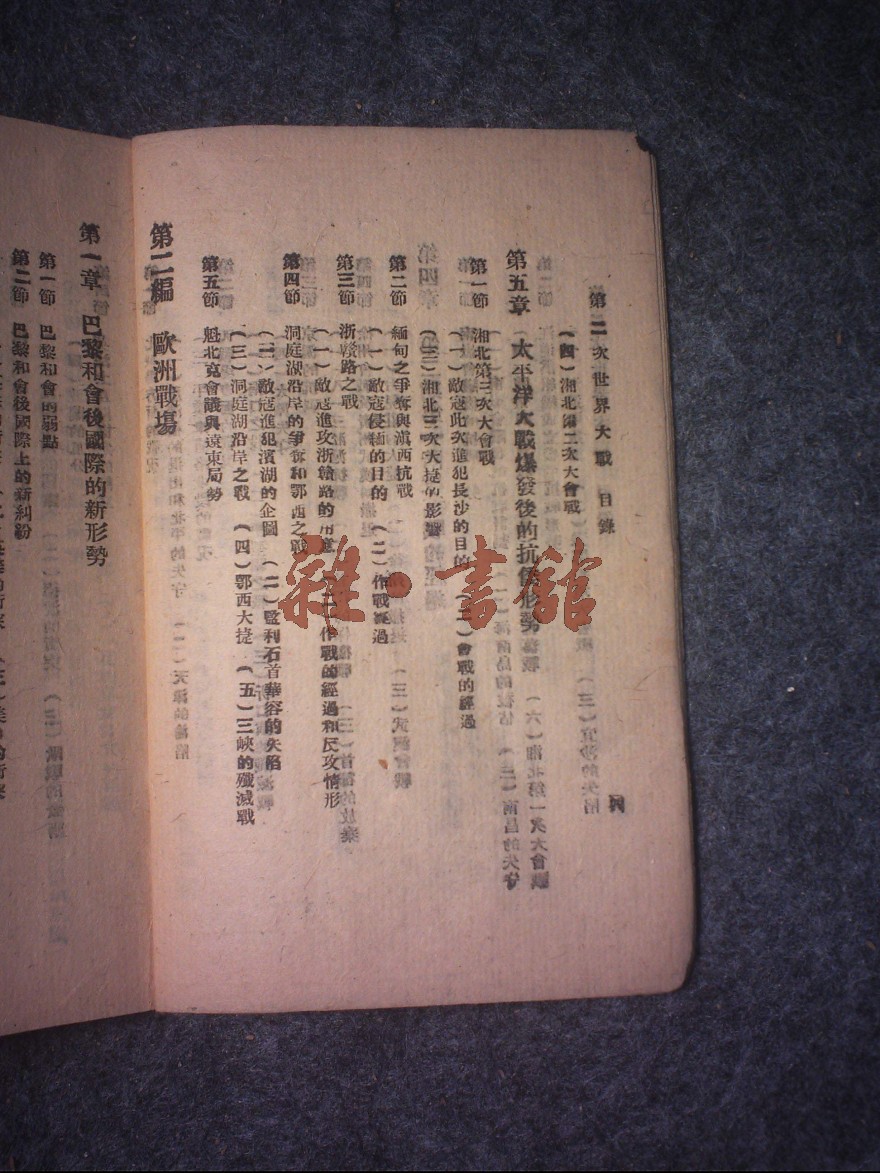 第二次世界大戰 目錄
四
(四)湘北第二次大會戰
第五章 太平洋大戰爆發後的抗戰形勢
第一節 湘北第三次大會戰
(一)敵寇此次進犯長沙的目的 (二)會戰的經過
(三)湘北三次大捷的影響
第二節 緬甸之爭奪與滇西抗戰
(一)敵寇侵緬的目的 (二)作戰經過
第三節 浙贛路之戰
(一)敵寇進攻浙贛路的用意 (二)作戰的經過和反攻情形
第四節 洞庭湖沿岸的爭奪和鄂西之戰
(一)敵寇進犯濱湖的企圖 (二)監利石首華容的失陷
(三)洞庭湖沿岸之戰 (四)鄂西大捷 (五)三峽的殲滅戰
第五節 魁北克會議與遠東局勢
第二編 歐洲戰場
第一章 巴黎和會後國際的新形勢
第一節 巴黎和會的弱點
第二節 巴黎和會後國際上的新糾紛
雜·書館